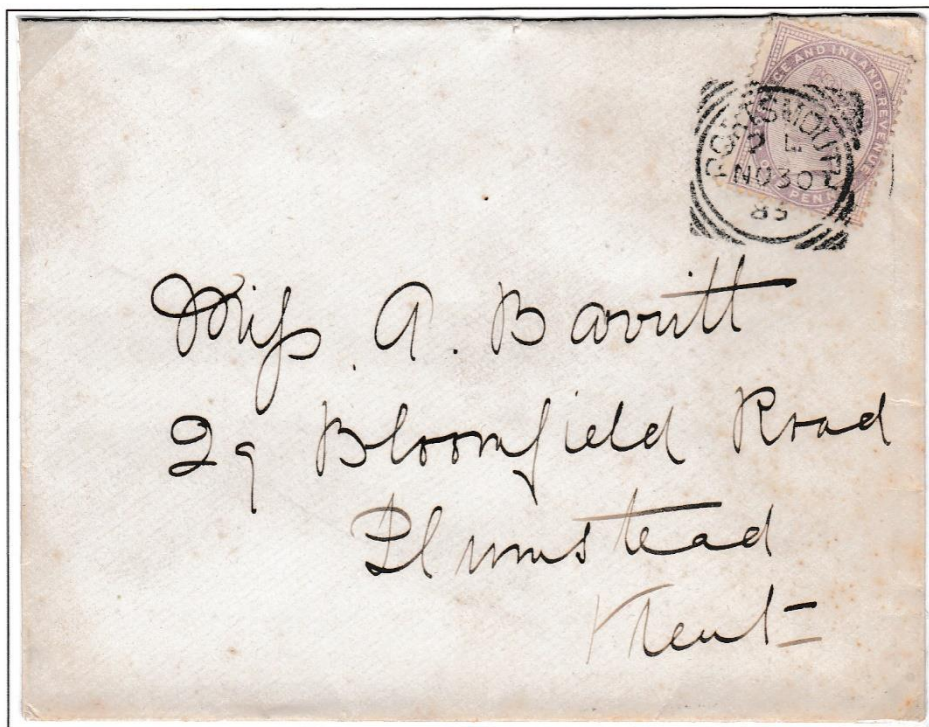 POSTAGE AND INLAND REVENUE
ONE PENNY
PORTSMOUTH
NO 30
89
Miss. A. Barritt
29 Bloomfield Road
Plumstead
Kent